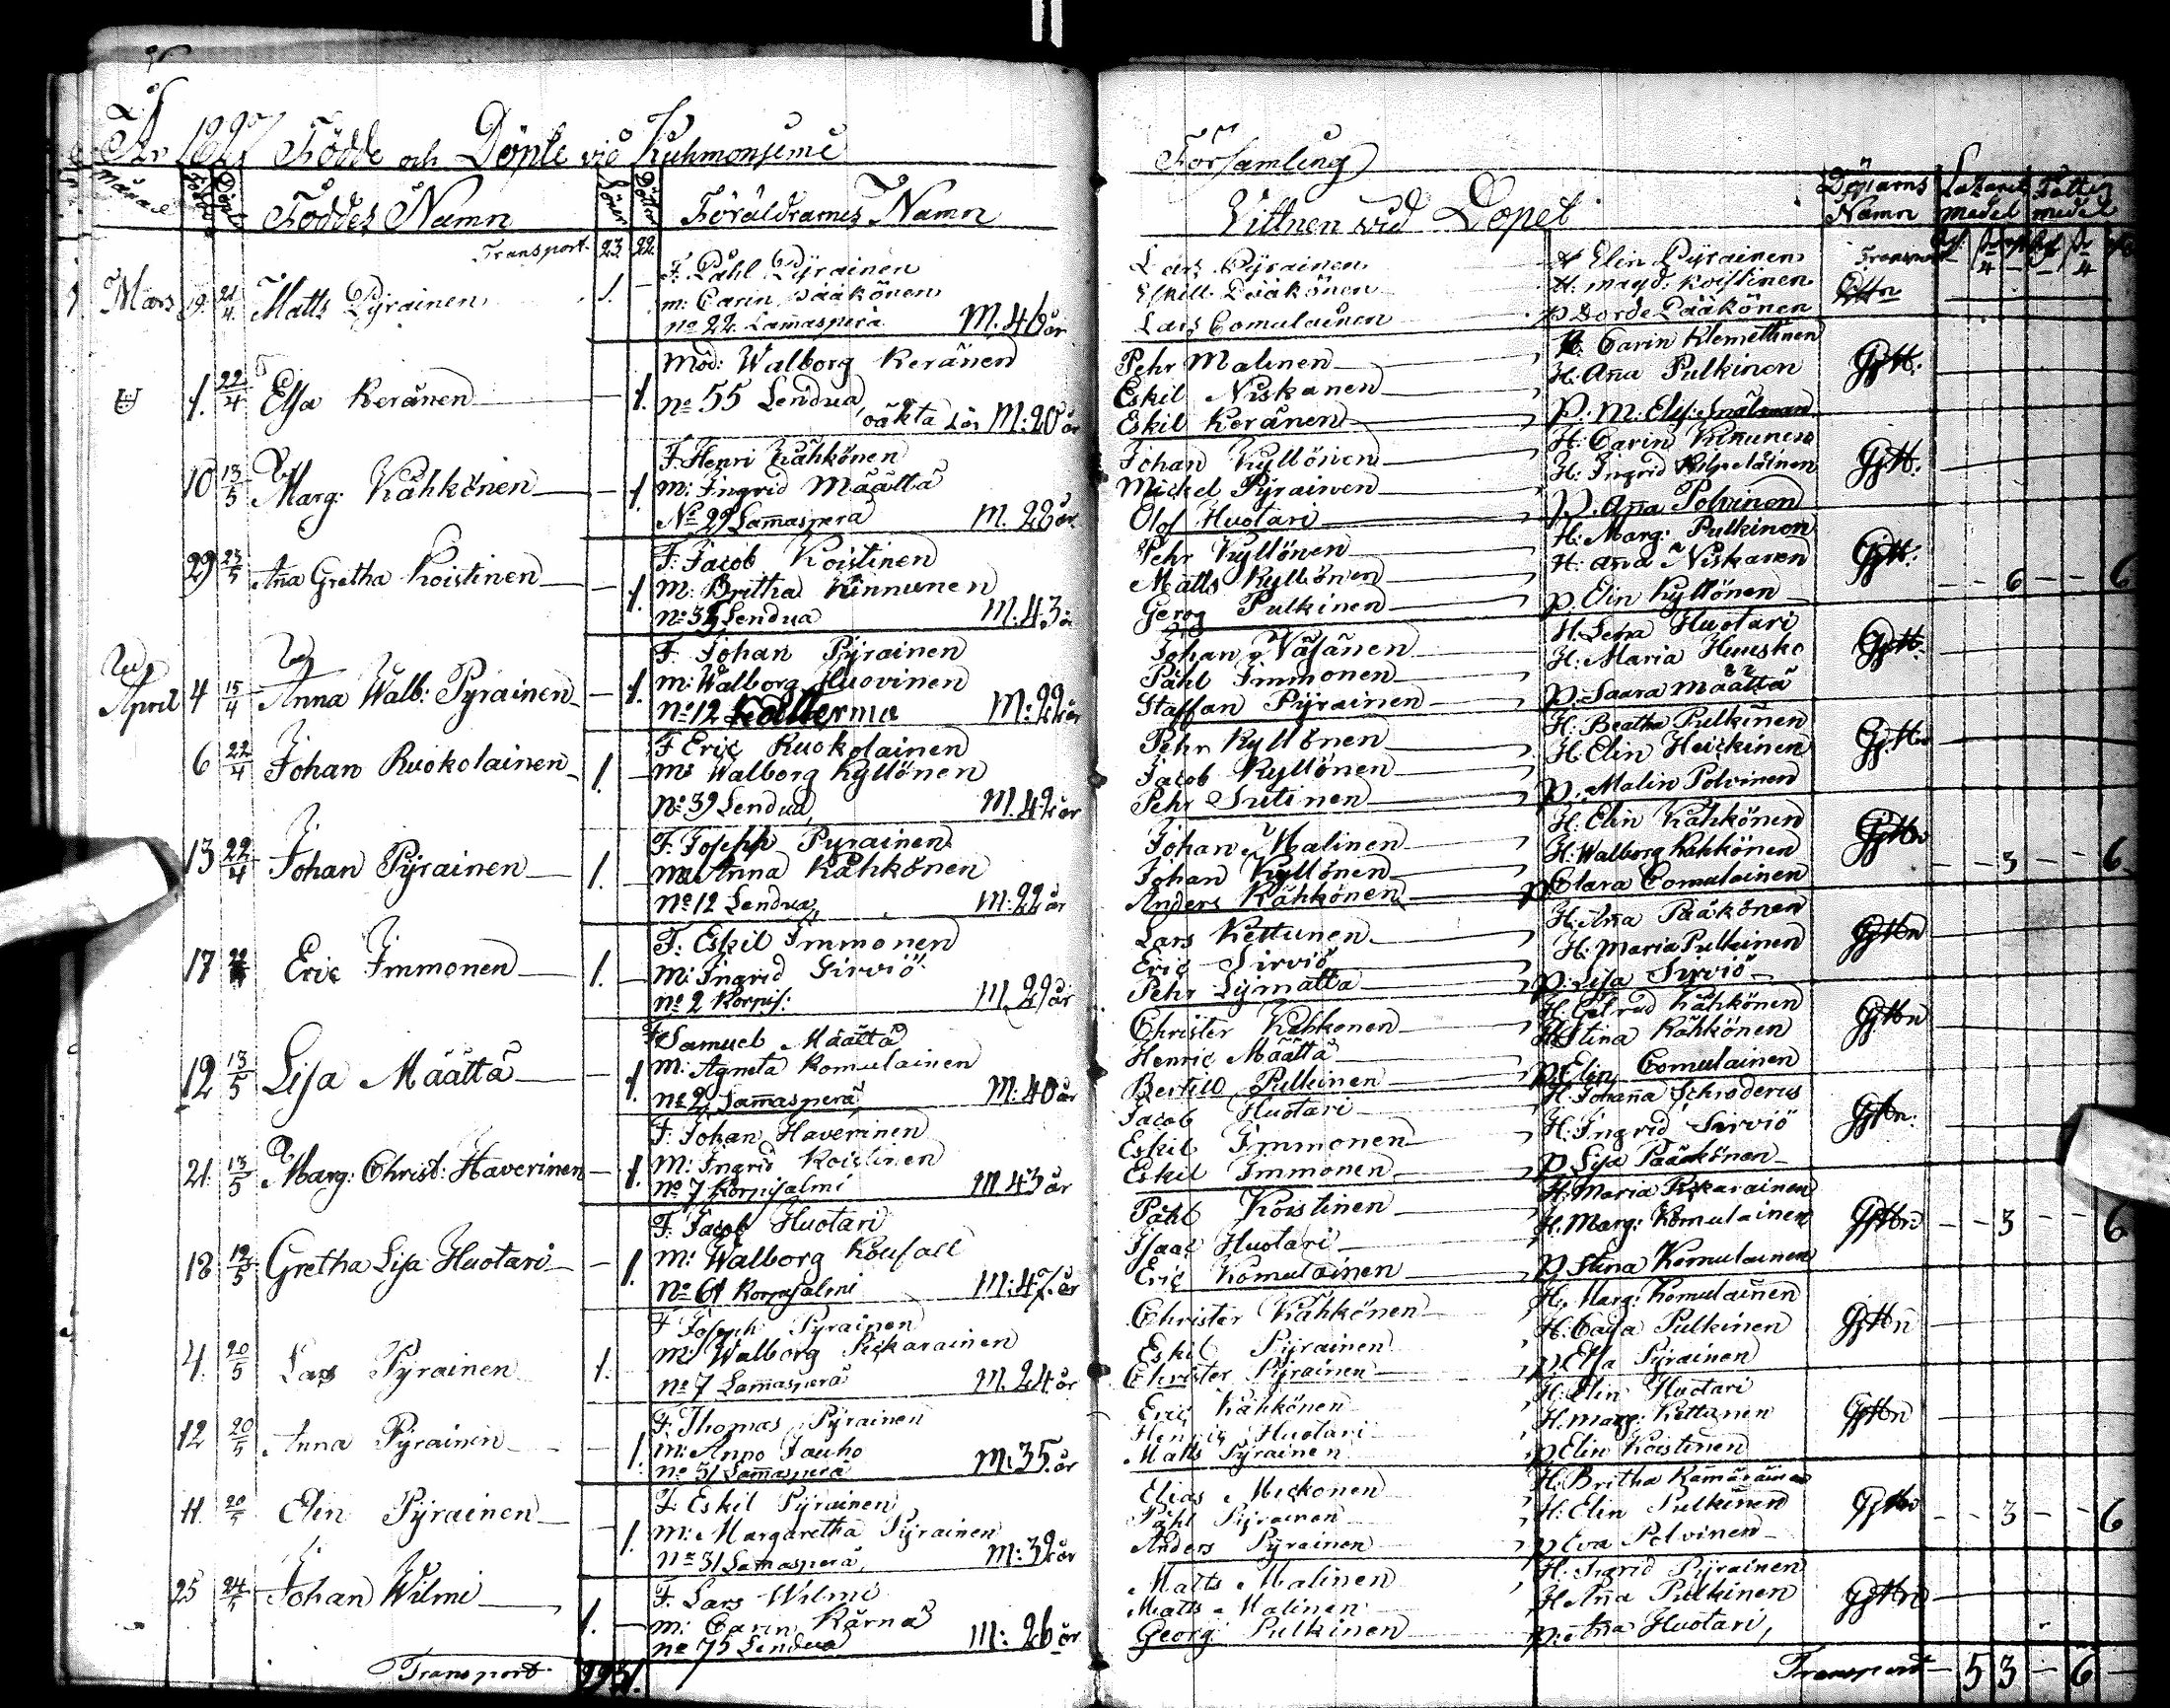 År 1827 Födde och Döpte vid Kuhmoniemi
Månad Födde Döpte Föddes Namn Söner Döttrar Föräldrarnes Namn
Transport 23. 22.
Mars 19. 21/4. Matts Pyrainen 1. — F. Påhl Pyrainen
m: Carin Pääkönen
no 22. Lam̄asperä M. 46 år
1. 22/4 Elsa Keränen — 1. Mod: Walborg Keränen
No 55 Lendua
oäkta M: 20 år
10 13/5 Marg: Kähkönen — 1. F. Henri Kähkönen
m: Ingrid Määttä
No 29 Lam̄asperä M. 28 år
29 23/5 An̄a Gretha Koistinen — 1. F. Jacob Koistinen
M: Britha Kinnunen
No: 35 Lendua M. 43:
April 4 15/4 Anna Walb: Pyrainen — 1. F. Johan Pyrainen
m: Walborg Huovinen
No: 12 M: 22 år
6 22/4 Johan Ruokolainen 1. — F Eric Ruokolainen
m: Walborg Kyllönen
No: 39 Lendua M. 42 år
13 22/4 Johan Pyrainen 1. — F. Joseph Pyrainen
m: Anna Kähkönen
No 12 Lendua M: 22 år
17 Eric Immonen 1. — F: Eskil Immonen
M: Ingrid Sirviö
no: 2 Korpis: M. 29 år
12 13/5 Lisa Määttä — 1. F Samuel Määttä
M: Agneta Komulainen
no 2 Lam̄asperä M: 40 år
21. 13/5 Marg: Christ: Haverinen — 1. F. Johan Haverinen
M: Ingrid Koistinen
No. 7 Korpisalmi M 43 år
18 19/5 Gretha Lisa Huotari — 1. F. Jacob Huotari
M: Walborg
No 61 Korpisalmi M: 47. år
4. 20/5 Lars Pyrainen 1. — F Joseph Pyrainen
M: Walborg Piskarainen
no 7 Lam̄asperä M. 24 år
12 20/5 Anna Pyrainen — 1. F. Thomas Pyrainen
M: Anno Jauho
no 51 Lam̄asperä M: 35. år
11. 20/5 Elin Pyrainen — 1. F. Eskil Pyrainen
M: Margaretha Pyrainen
no 31 Lam̄asperä M: 32 år
25 24/5 Johan Wilmi 1. — F. Lars Wilmi
m: Carin Kärnä
no 75 Lendua M: 26 år
Transport 31.
Församling
Vittnen vid Dopet Döparns Namn Lazarets medel Fattig medel
Lars Pyrainen H Elin Pyrainen Transport 4 — — 4
Eskill Pääkönen H. magd. Koistinen
Lars Comulainen p Dorde Pääkönen
Pehr Malinen H: Carin Klemettinen
Eskil Niskanen H. An̄a Pulkinen
Eskil Keränen P. M: Elis: Snälman
Johan Kyllönen H: Carin Kinunen
Mickel Pyrainen H: Ingrid Kilpeläinen
Olof Huotari p. An̄a Polvinen
Pehr Kyllönen H: Marg: Pulkinen
Matts Kyllönen H: an̄a Niskanen
Georg Pulkinen p. Elin Kyllönen — — 6 — — 6
Johan Väisänen H. Lena Huotari
Påhl Immonen H: Maria Huusko
Staffan Pyrainen p. Saara Määttä
Pehr Kyllönen H: Beatha Pulkinen
Jacob Kyllönen H: Elin Heickinen
Pehr Sutinen p: Malin Polvinen
Johan Malinen H: Elin Kähkönen
Johan Kyllönen H: Walborg Kähkönen
Anders Kähkönen p Clara Comulainen — — 3 — — 6
Lars Kettunen H: An̄a Pääkönen
Eric Sirviö H: Maria Pulkinen
Pehr Lÿmatta p: Lisa Sirviö
Christer Kähkönen H: Getrud Kähkönen
Henric Määttä H: Stina Kähkönen
Bertill Pulkinen p. Elin Comulainen
Jacob Huotari H. Johan̄a Schroderus
Eskil Immonen H: Ingrid Sirviö
Eskil Immonen p. Lisa Pääkönen
Påhl Koistinen H: Maria Piskarainen
Isaac Huotari H. Marg: Komulainen
Eric Komulainen p. Stina Komulainen — — 3 — — 6
Christer Kähkönen H: Marg: Komulainen
Eskil Pyrainen H: Caisa Pulkinen
Christer Pyrainen p. Elsa Pyrainen
Eric Kähkönen H: Elin Huotari
Henric Huotari H. marg: Kettunen
Matts Pyrainen p Elin Koistinen
Elias Mickonen H: Britha Kämäräinen
Påhl Pyrainen H: Elin Pulkinen
Anders Pyrainen p Eva Polvinen — — 3 — — 6
Matts Malinen H: Ingrid Pyrainen
Matts Malinen H An̄a Pulkinen
Georg Pulkinen p: An̄a Huotari
Transport — 5 3 — 6 —